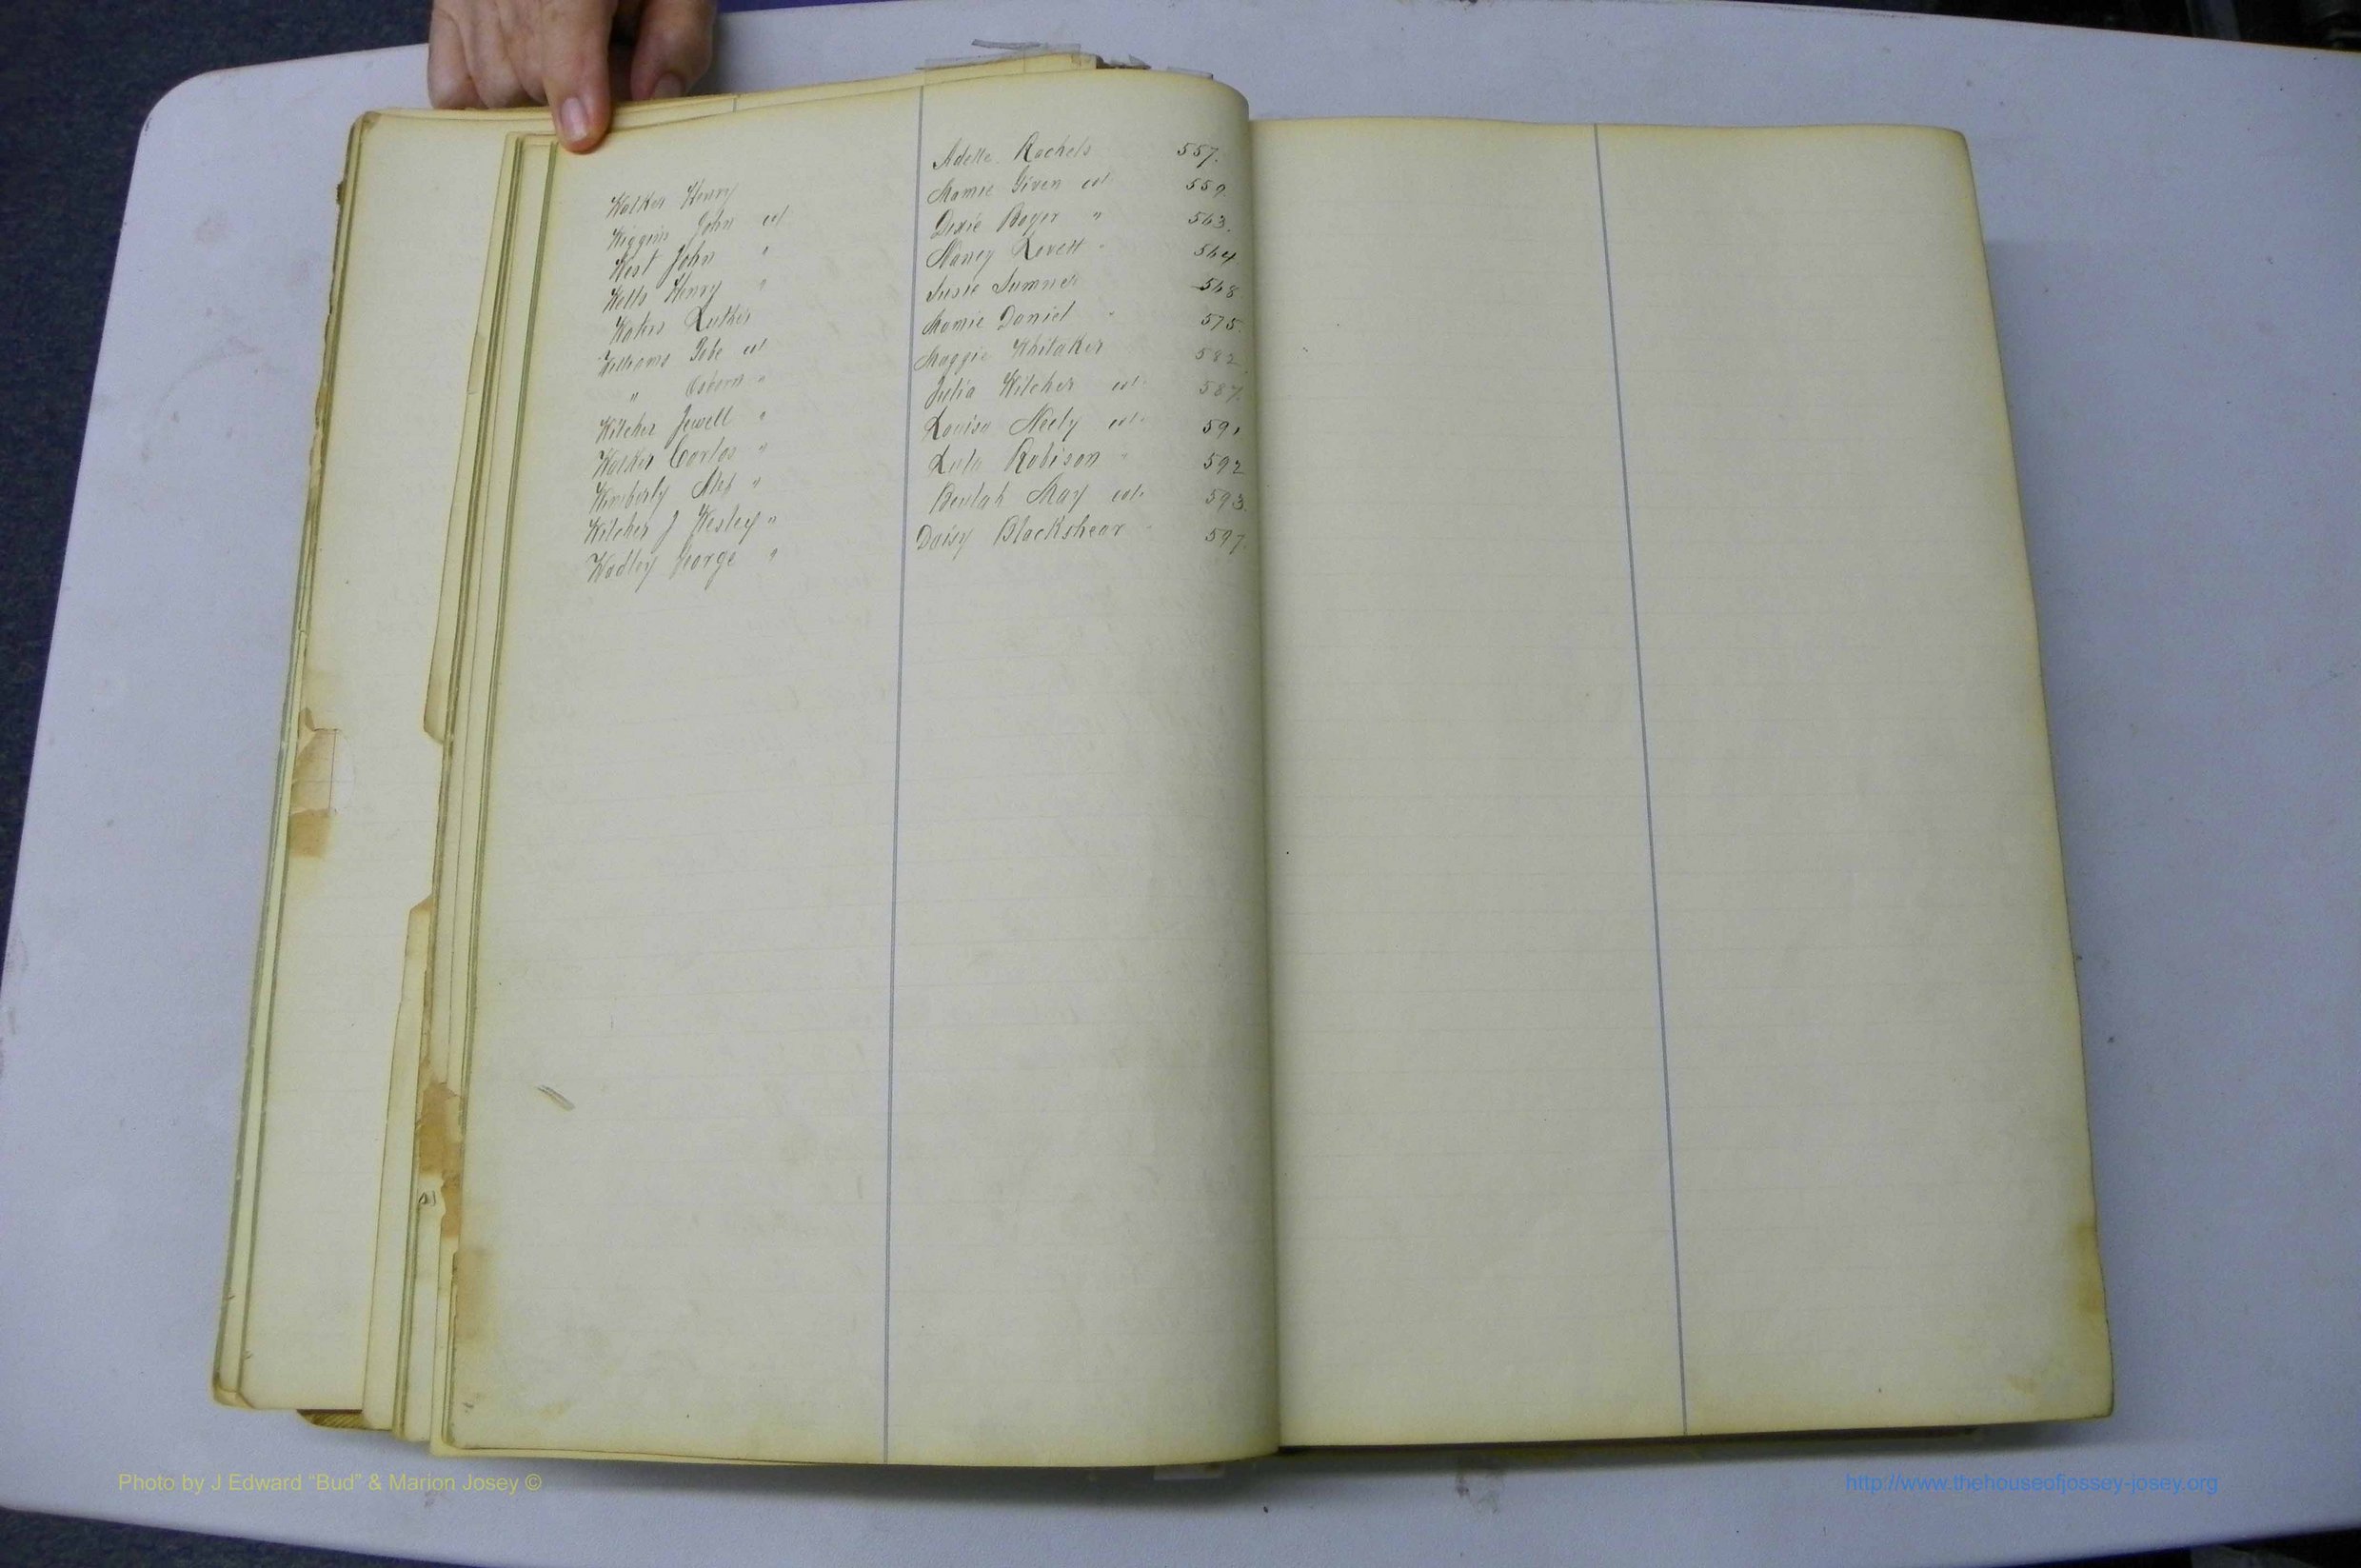 Walker Henry Adella Rachels 557.
Wiggins John col Mamie Given col. 559.
West John " Dixie Boyer " 563.
Watts Henry " Nancy Levett " 564
Waters Luther Susie Sumner 568
Williams Gobe col Mamie Daniel " 575.
" Osborn " Maggie Whitaker 582.
Wilcher Jewell " Julia Wilcher col. 587.
Walker Carlos " Louisa Neely col. 591
Kimberly Alex " Lula Robison " 592
Wilcher J Wesley " Beulah May col. 593.
Wadley George " Daisy Blackshear " 597.
Photo by J Edward “Bud” & Marion Josey ©
http://www.thehouseofjossey-josey.org